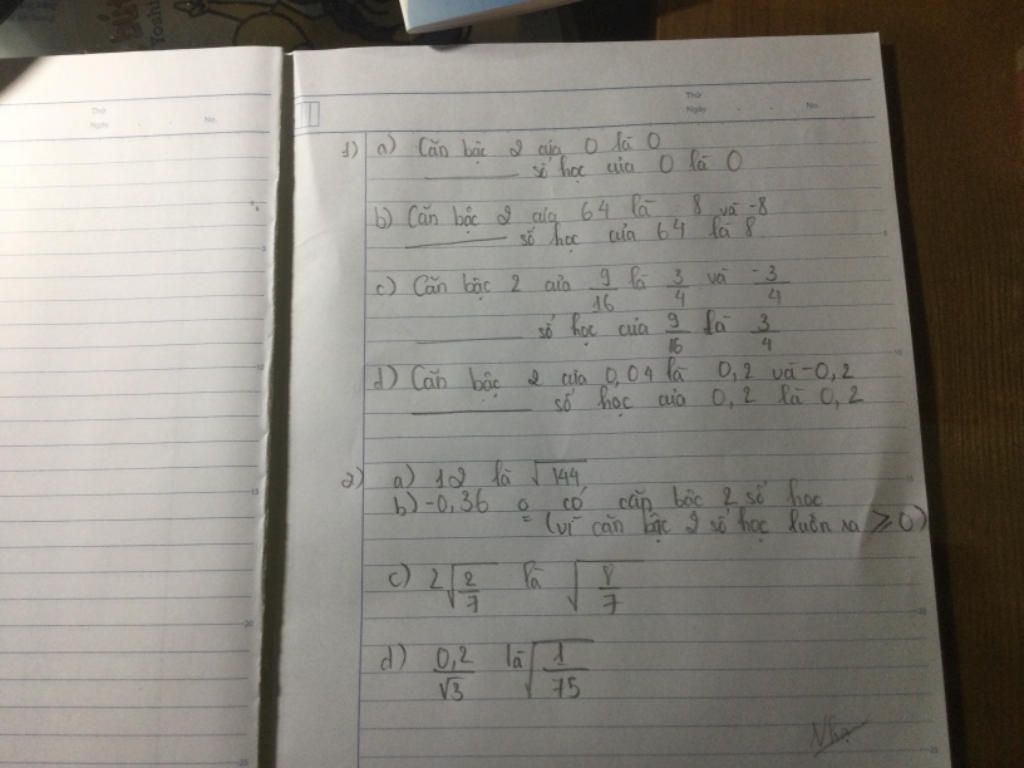 Yoshi
Thứ
Ngày
No.
Thứ
Ngày
No.
1) a) Căn bậc 2 của 0 là 0
_____ số học của 0 là 0
b) Căn bậc 2 của 64 là 8 và -8
_____ số học của 64 là 8
c) Căn bậc 2 của 9/16 là 3/4 và -3/4
_____ số học của 9/16 là 3/4
d) Căn bậc 2 của 0,04 là 0,2 và -0,2
_____ số học của 0,2 là 0,2
2) a) 12 là √144
b) -0,36 o có căn bậc 2 số học
(vì căn bậc 2 số học luôn ra ≥ 0)
c) 2√(2/7) là √(8/7)
d) 0,2/√3 là √(1/75)